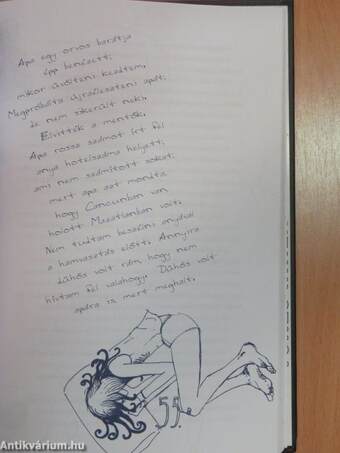 Apa egy orvos barátja
épp benézett;
mikor üvölteni kezdtem,
Megpróbálta újraéleszteni apát;
de nem sikerült neki.
Elvitték a mentők.
Apa rossz számot írt fel
anya hotelszáma helyett;
ami nem számított sokat;
mert apa azt mondta
hogy Cancunban van
holott Mazatlanban volt.
Nem tudtam beszélni anyával
a hamvasztás előtt. Annyira
dühös volt rám, hogy nem
hívtam fel valahogy. Dühös volt
apára is mert meghalt.
55.
Antikvárium.hu